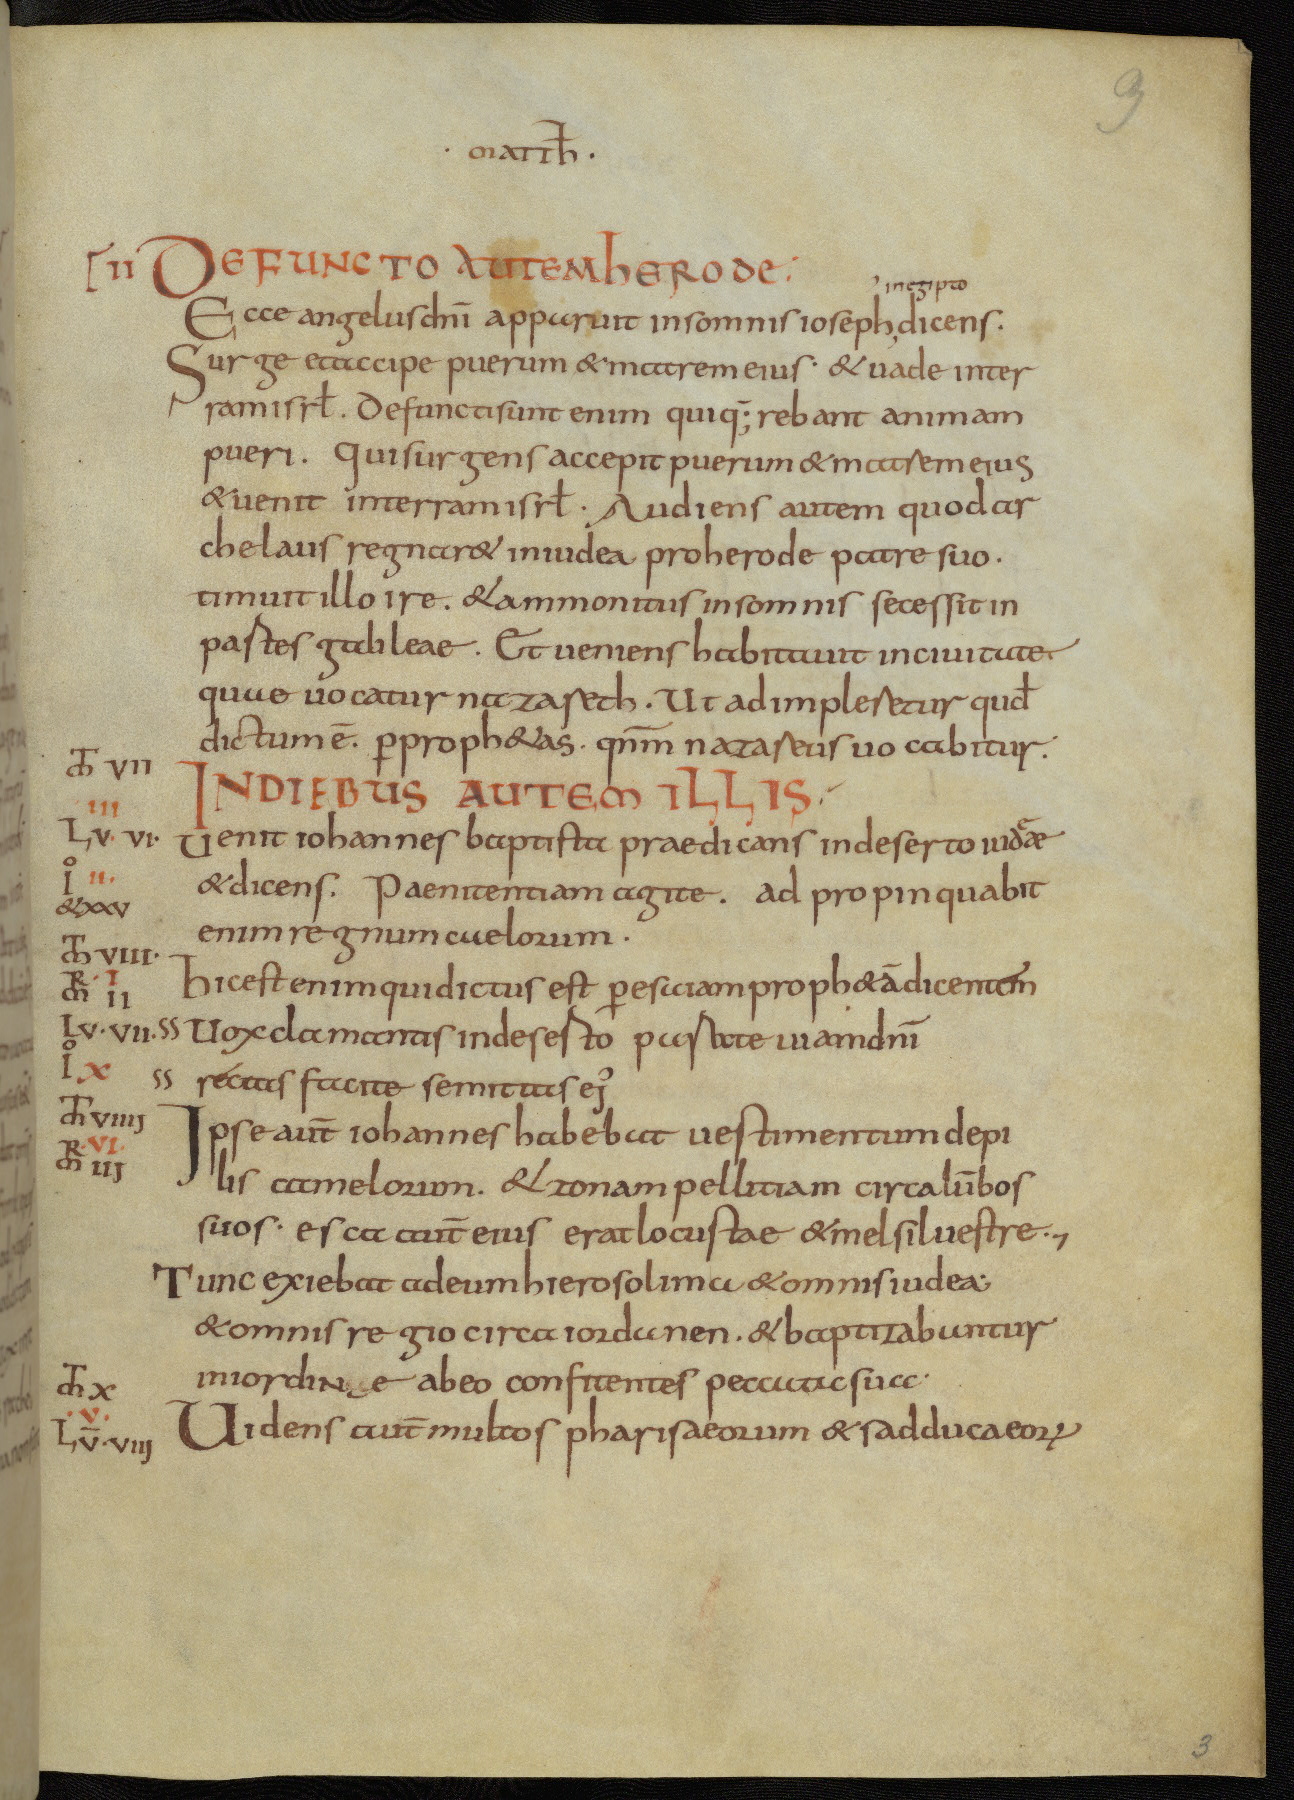 9
· matth̄ ·
II DEFUNCTO AUTEM hERODE:
in egipto
Ecce angelus dn̄i apparuit in somnis ioseph, dicens.
Surge et accipe puerum & matrem eius · & uade in ter
ram isrl̄. Defuncti sunt enim qui q̄;rebant animam
pueri. Qui surgens accepit puerum & matrem eius
& uenit in terram isrl̄ · Audiens autem quod ar
chelaus regnar& in iudea pro herode patre suo.
timuit illo ire. & ammonitus in somnis secessit in
partes galileae. Et ueniens habitauit in ciuitate
quae uocatur nazareth. Ut adimpleretur qud̄
dictum ē. p̄ proph&as. qnm̄ nazareus uocabitur.
mTh VII
INDIEBUS AUTEM ILLIS.
III
Lv. VI. Uenit iohannes baptista praedicans in deserto iudeae
Io II.
& dicens. Paenitentiam agite. adpropinquabit
& XXV
enim regnum caelorum.
mTh VIII.
mR I II hic est enim qui dictus est p̄ esaiam proph&ā dicentem
Lv. VII. Uox clamantis in deserto parate uiam dn̄i
Io X rectas facite semitas ej᾿
mTh VIIIJ Ipse aut̄ iohannes habebat uestimentum de pi
mR VI. IIJ
lis camelorum. & zonam pelliciam circa lūbos
suos · esca aut̄ eius erat locustae & mel siluestre.,
Tunc exiebat ad eum hierosolima & omnis iudea;
& omnis regio circa iordanen. & baptizabuntur
in iordine ab eo confitentes peccata sua.
mTh X
V.
Lv̄. VIIJ Uidens aut̄ multos pharisaeorum & sadducaeorꝝ
3